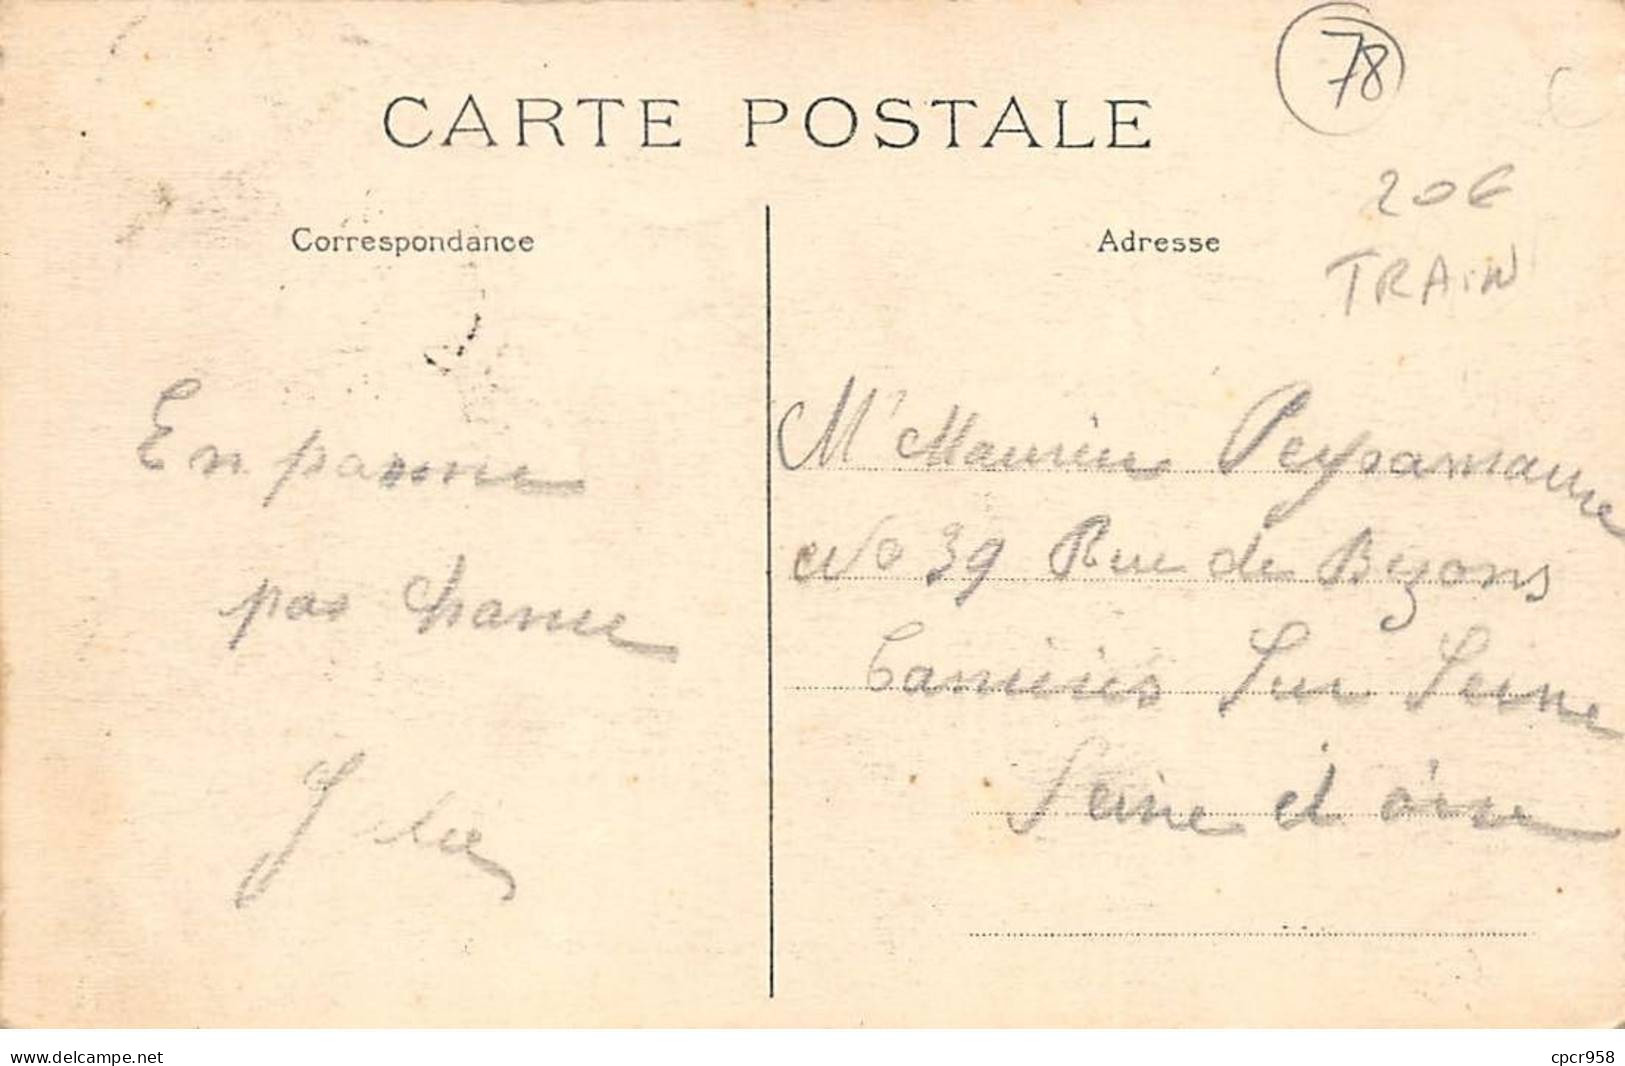 78
CARTE POSTALE
20€
TRAIN
Correspondance
Adresse
En panne
pas chance
Mr Maurice
No 39 Rue de Bezons
Sur Seine
Seine et oise
www.delcampe.net
cpcr958